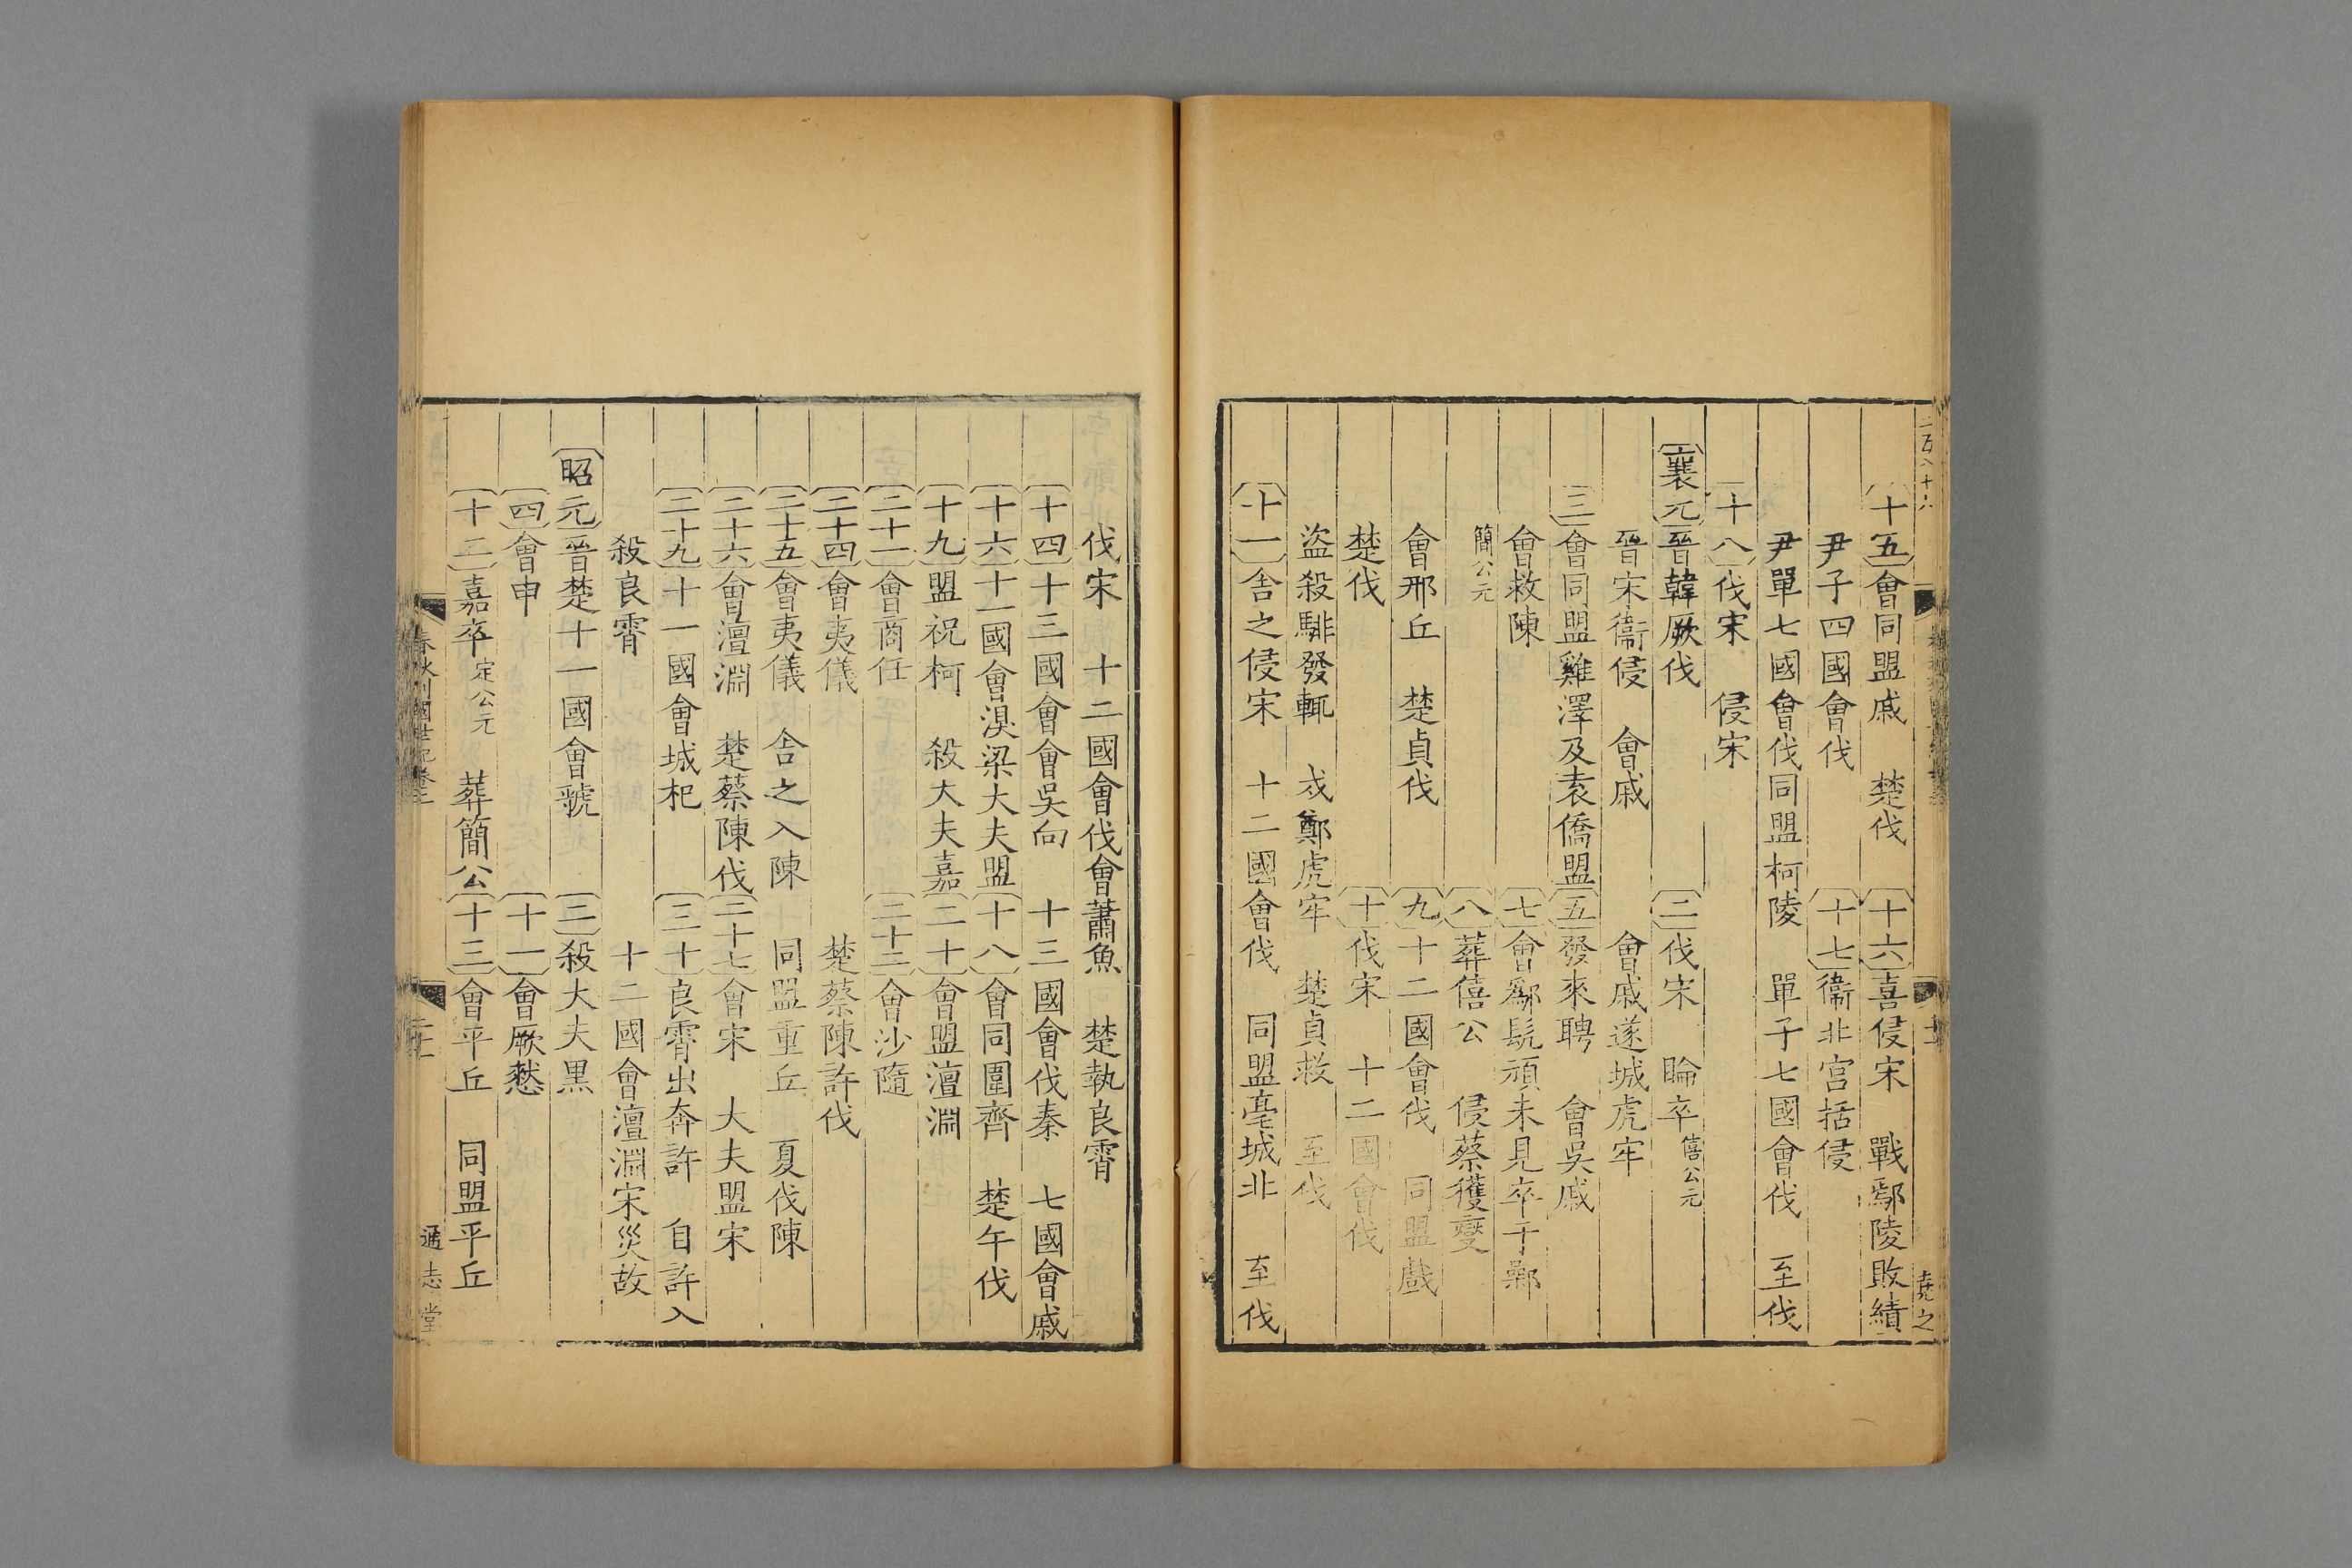 十五會同盟戚　楚伐　十六喜侵宋　戰鄢陵敗績
尹子四國會伐　十七衞北宫括侵
尹單七國會伐同盟柯陵　單子七國會伐　至伐
十八伐宋　侵宋
襄元晉韓厥伐　二伐宋　睔卒僖公元
晉宋衞侵　會戚　會戚遂城虎牢
三會同盟雞澤及袁僑盟五發來聘　會吳戚
會救陳　七會鄬髡頑未見卒于鄵
簡公元　八葬僖公　侵蔡獲燮
會邢丘　楚貞伐　九十二國會伐　同盟戲
楚伐　十伐宋　十二國會伐
盜殺騑發輒　戍鄭虎牢　楚貞救　至伐
十一舍之侵宋　十二國會伐　同盟亳城北　至伐
伐宋　十二國會伐會蕭魚　楚執良霄
十四十三國會會吳向　十三國會伐秦　七國會戚
十六十一國會湨梁大夫盟十八會同圍齊　楚午伐
十九盟祝柯　殺大夫嘉二十會盟澶淵
二十一會商任　二十二會沙隨
二十四會夷儀　楚蔡陳許伐
二十五會夷儀　舍之入陳　同盟重丘　夏伐陳
二十六會澶淵　楚蔡陳伐二十七會宋　大夫盟宋
二十九十一國會城杞　三十良霄出奔許　自許入
殺良霄　十二國會澶淵宋災故
昭元晉楚十一國會虢　二殺大夫黑
四會申　十一會厥憖
十二嘉卒定公元　葬簡公十三會平丘　同盟平丘
春秋列國世紀卷三
通志堂